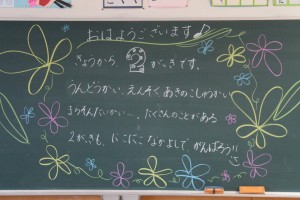 おはようございます♪
きょうから 2 がっきです。
うんどうかい、えんそく、あきのしゅうかい
まらそんたいかい…、たくさんのことがある
2がっきも、にこにこなかよしで がんばろう!!